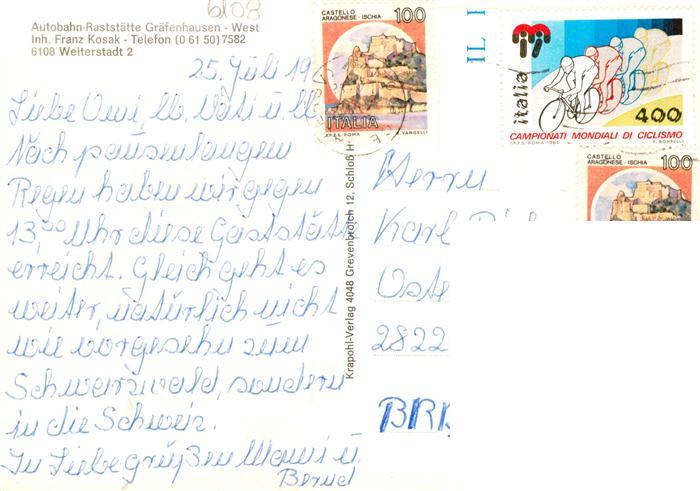 6108
Autobahn-Raststätte Gräfenhausen - West
Inh. Franz Kosak - Telefon (0 61 50) 7582
6108 Weiterstadt 2
25. Juli 19
Liebe Omi, lb. Vati u. lb.
Nach pausenlangem
Regen haben wir gegen
13,00 Uhr diese Gaststätte
erreicht. Gleich geht es
weiter, natürlich nicht
wie vorgesehn zum
Schwarzwald, sondern
in die Schweiz.
In Liebe grüßen Mami u.
Bernd
Krapohl-Verlag 4048 Grevenbroich 12, Schloß H
CASTELLO
ARAGONESE - ISCHIA
100
ITALIA
I.P.Z.S. - ROMA
R. VANGELLI
IL
italia
400
CAMPIONATI MONDIALI DI CICLISMO
I.P.Z.S. - ROMA - 1985
F. BORRELLI
CASTELLO
ARAGONESE - ISCHIA
100
Herrn
Karl
Oste
2822
BR